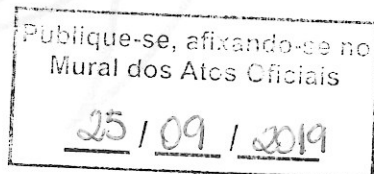 Publique-se, afixando-se no
Mural dos Atos Oficiais
25 / 09 / 2019